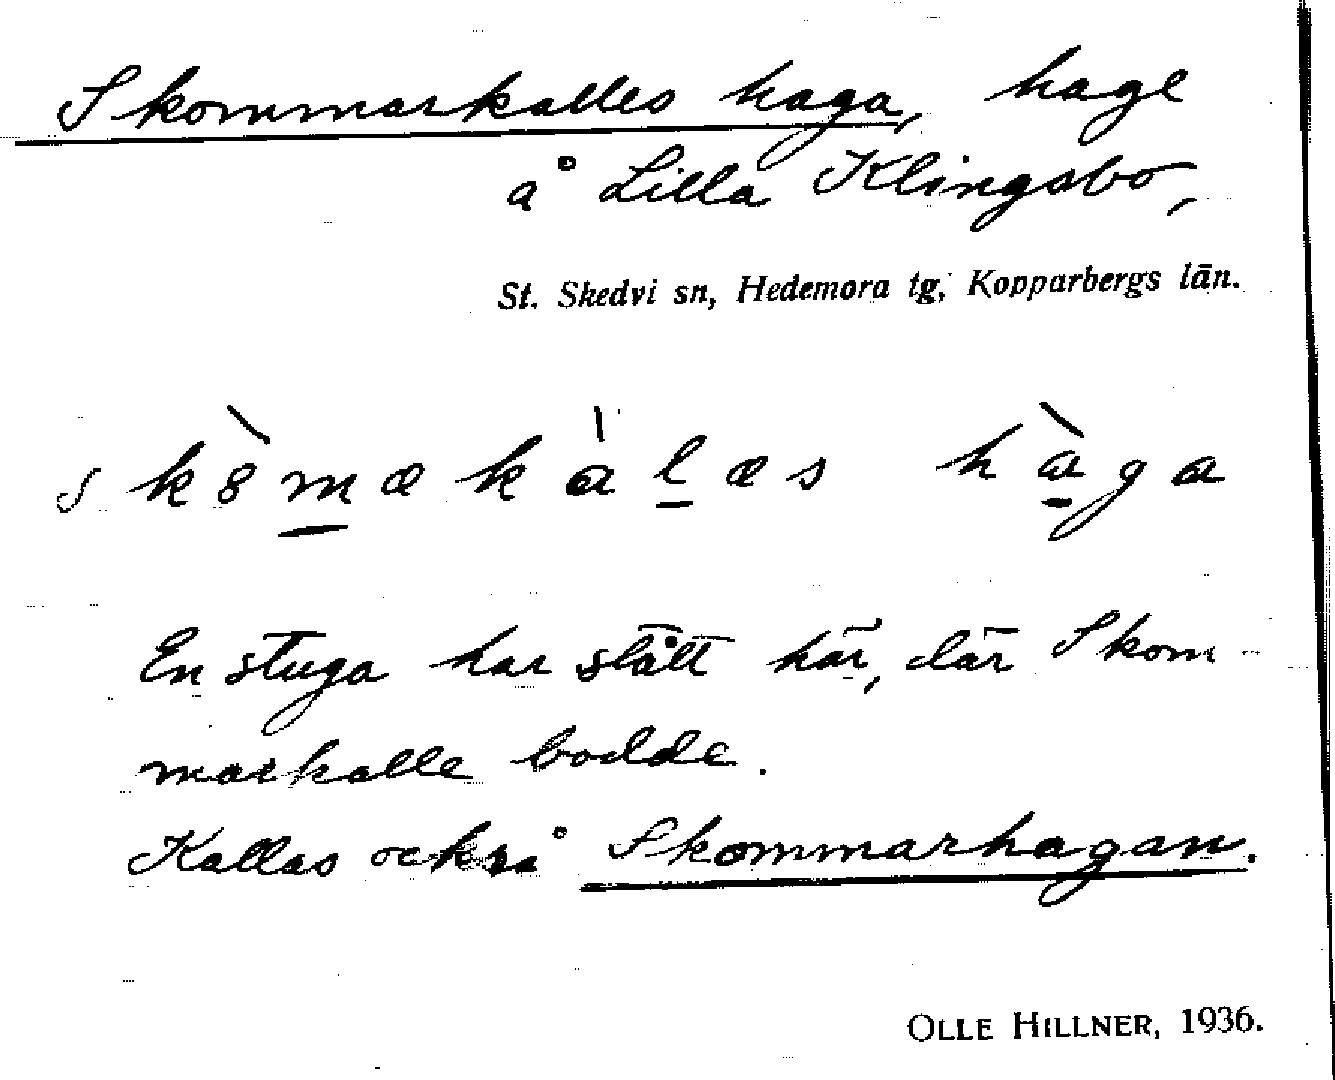 Skommarkalles haga, hage
å Lilla Klingsbo,
St. Skedvi sn, Hedemora tg, Kopparbergs län.
sk8̀mækàlæs hàga
En stuga har stått här, där Skom-
markalle bodde.
Kallas också Skommarhagan.
OLLE HILLNER, 1936.